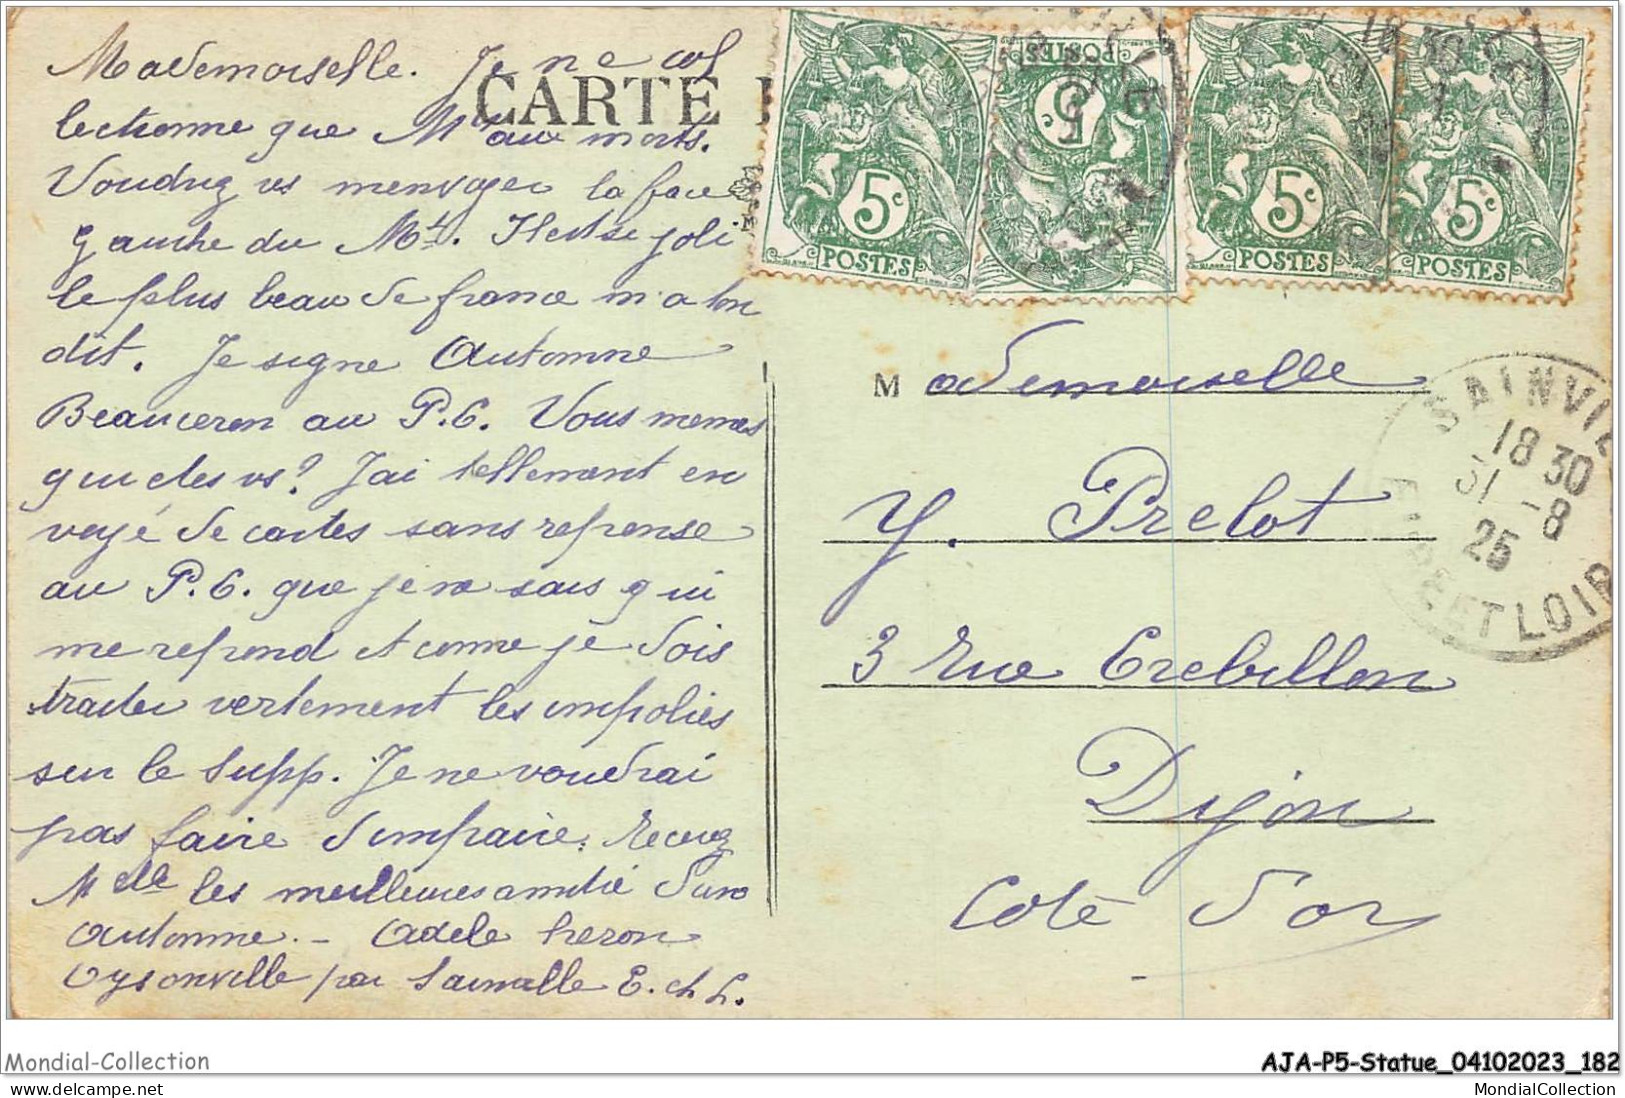 Mademoiselle. Je ne col
CARTE
lectionne que Mts aux morts.
Voudriez vs m'envoyer la face
gauche du Mt.
joli
le plus beau de france m'a ton
dit. Je signe Automne
Beauceron au P.C. Vous memes
qui etes vs? J'ai tellement en
voyé de cartes sans reponse
au P.C. que je ne sais qui
me repond et comme je dois
traiter vertement les impolies
sur le supp. Je ne voudrai
pas faire d'impaire. Recevez
Melle les meilleures amitié d'un
automne. - Adele heron
Oysonville par Sainville E. et L.
5c
POSTES
5c
POSTES
5c
POSTES
5c
POSTES
18 30
Mademoiselle
Y. Prelot
3 rue Crebillon
Dijon
Cote d'or
SAINVILLE
18 30
31 -8
25
EURE ET LOIR
Mondial-Collection
AJA-P5-Statue_04102023_182
delcampe.net
MondialCollection